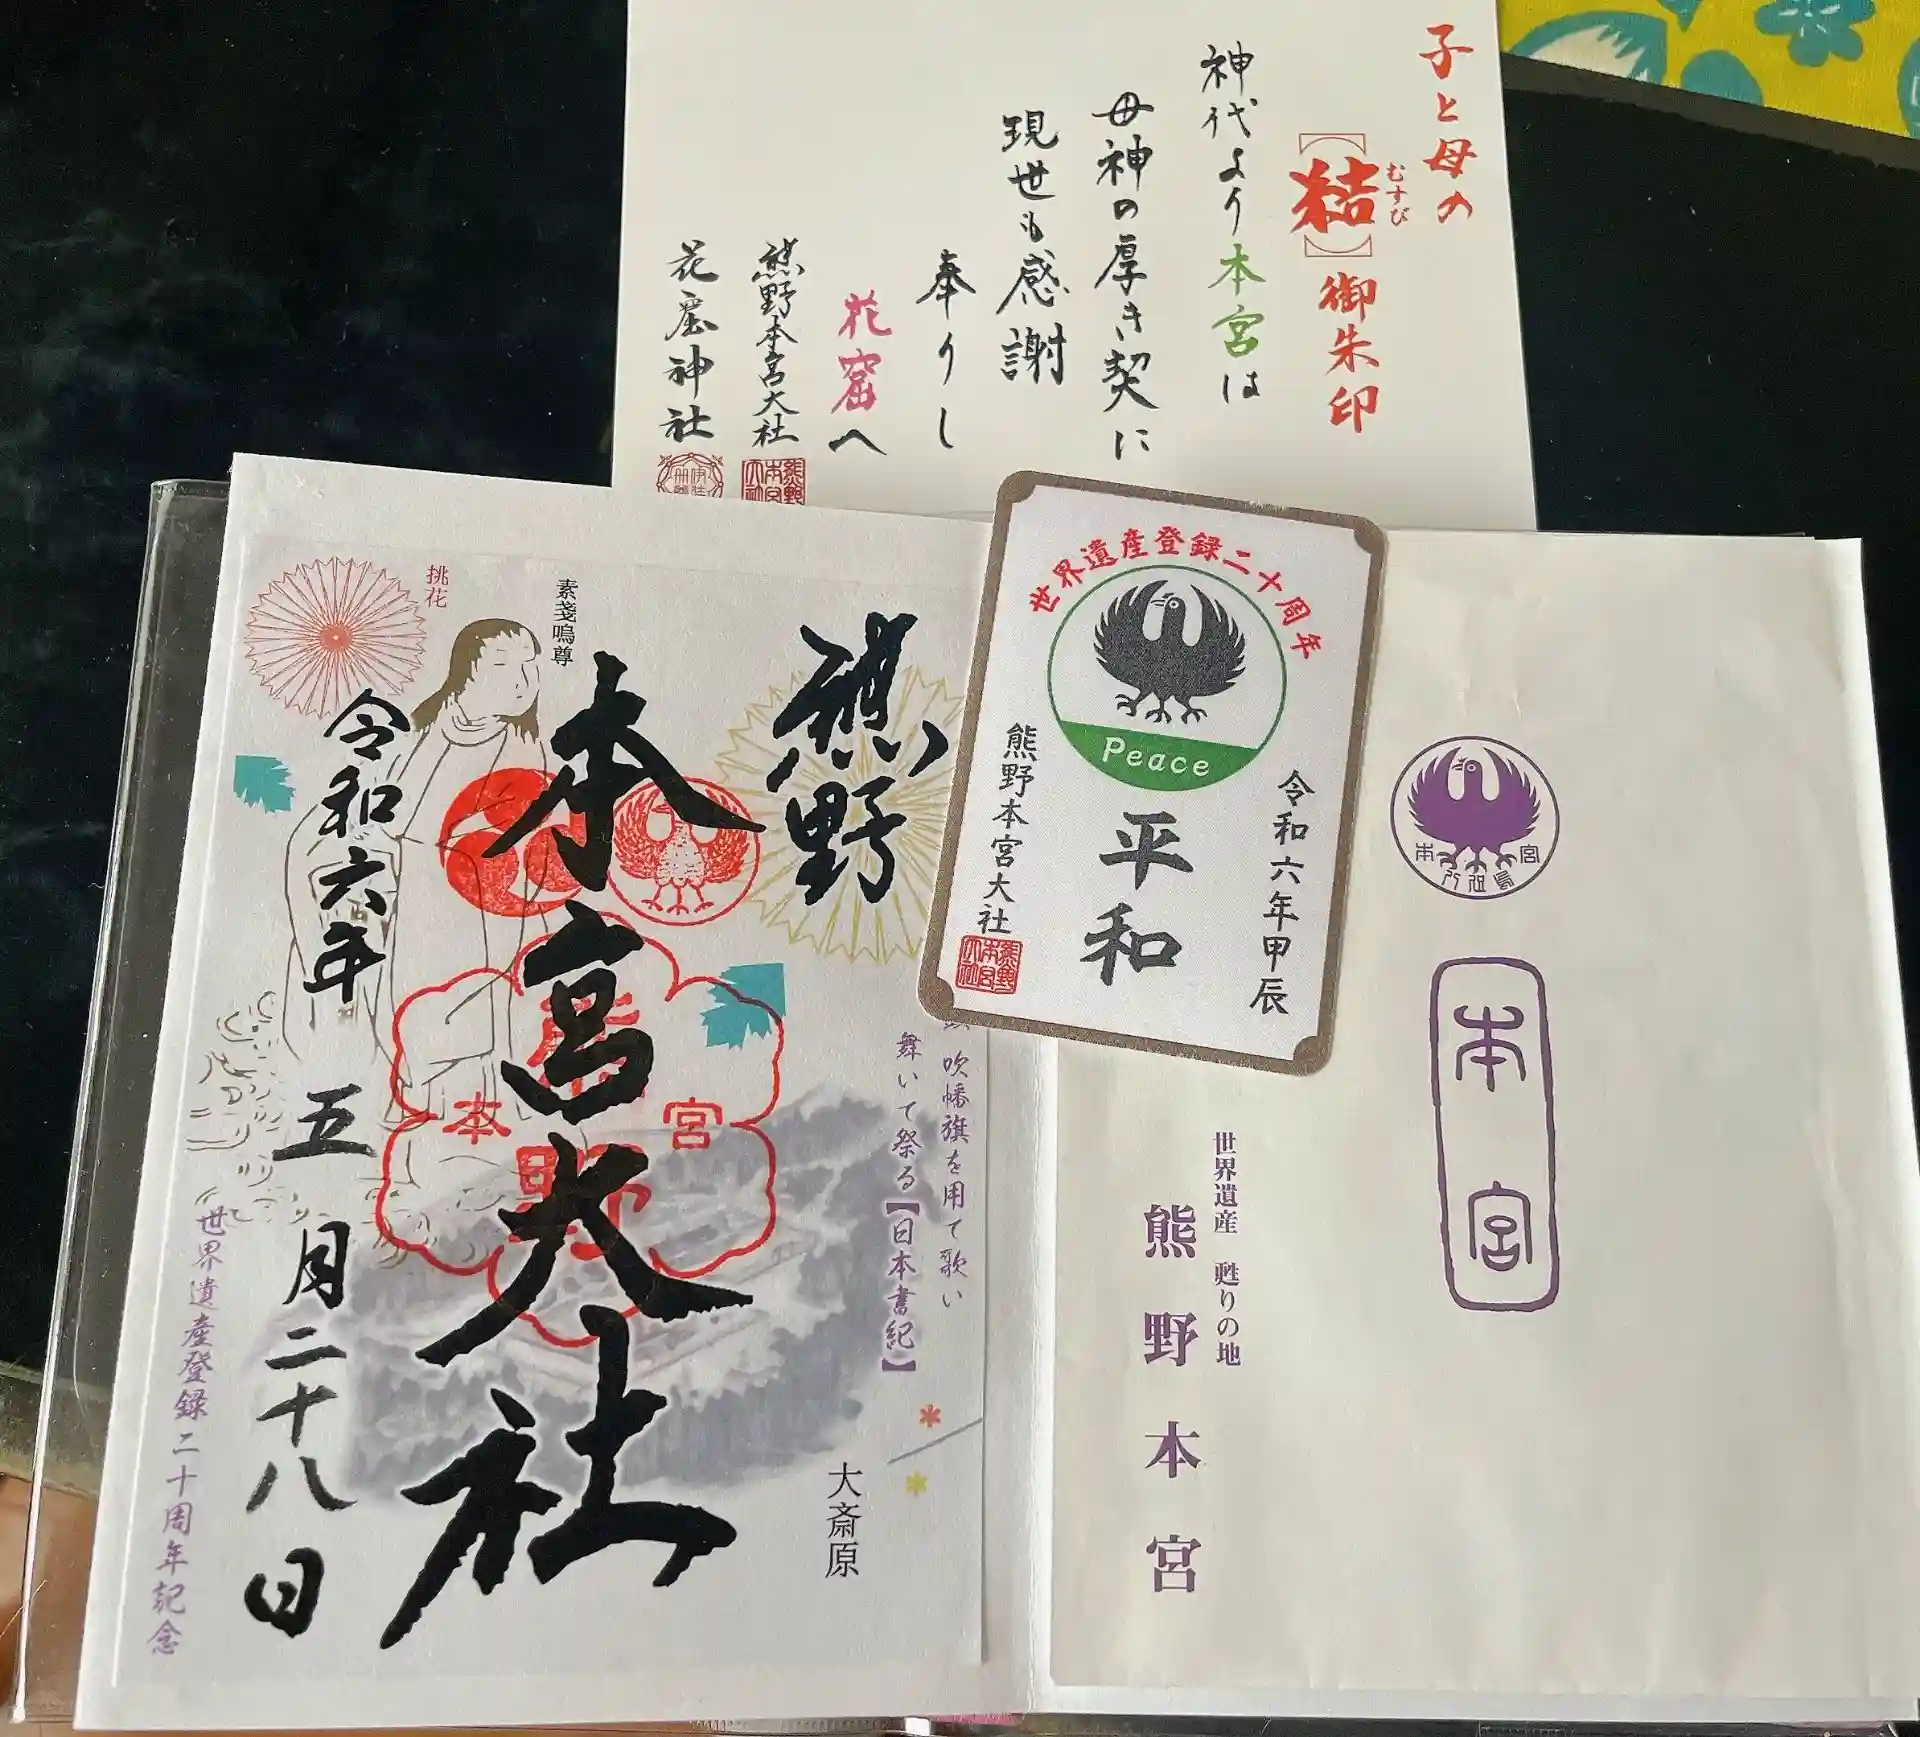 子と母の
【結】御朱印
むすび
神代より本宮は
母神の厚き契に
現世も感謝
奉りし
花窟へ
熊野本宮大社
花窟神社
熊野本宮大社
世界遺産登録二十周年
Peace
平和
令和六年甲辰
熊野本宮大社
熊野本宮大社
熊野
本宮大社
令和六年
五月二十八日
素戔嗚尊
挑花
本宮
吹幡旗を用て歌い
舞いて祭る【日本書紀】
大斎原
世界遺産登録二十周年記念
本宮
本宮
世界遺産 甦りの地
熊野本宮